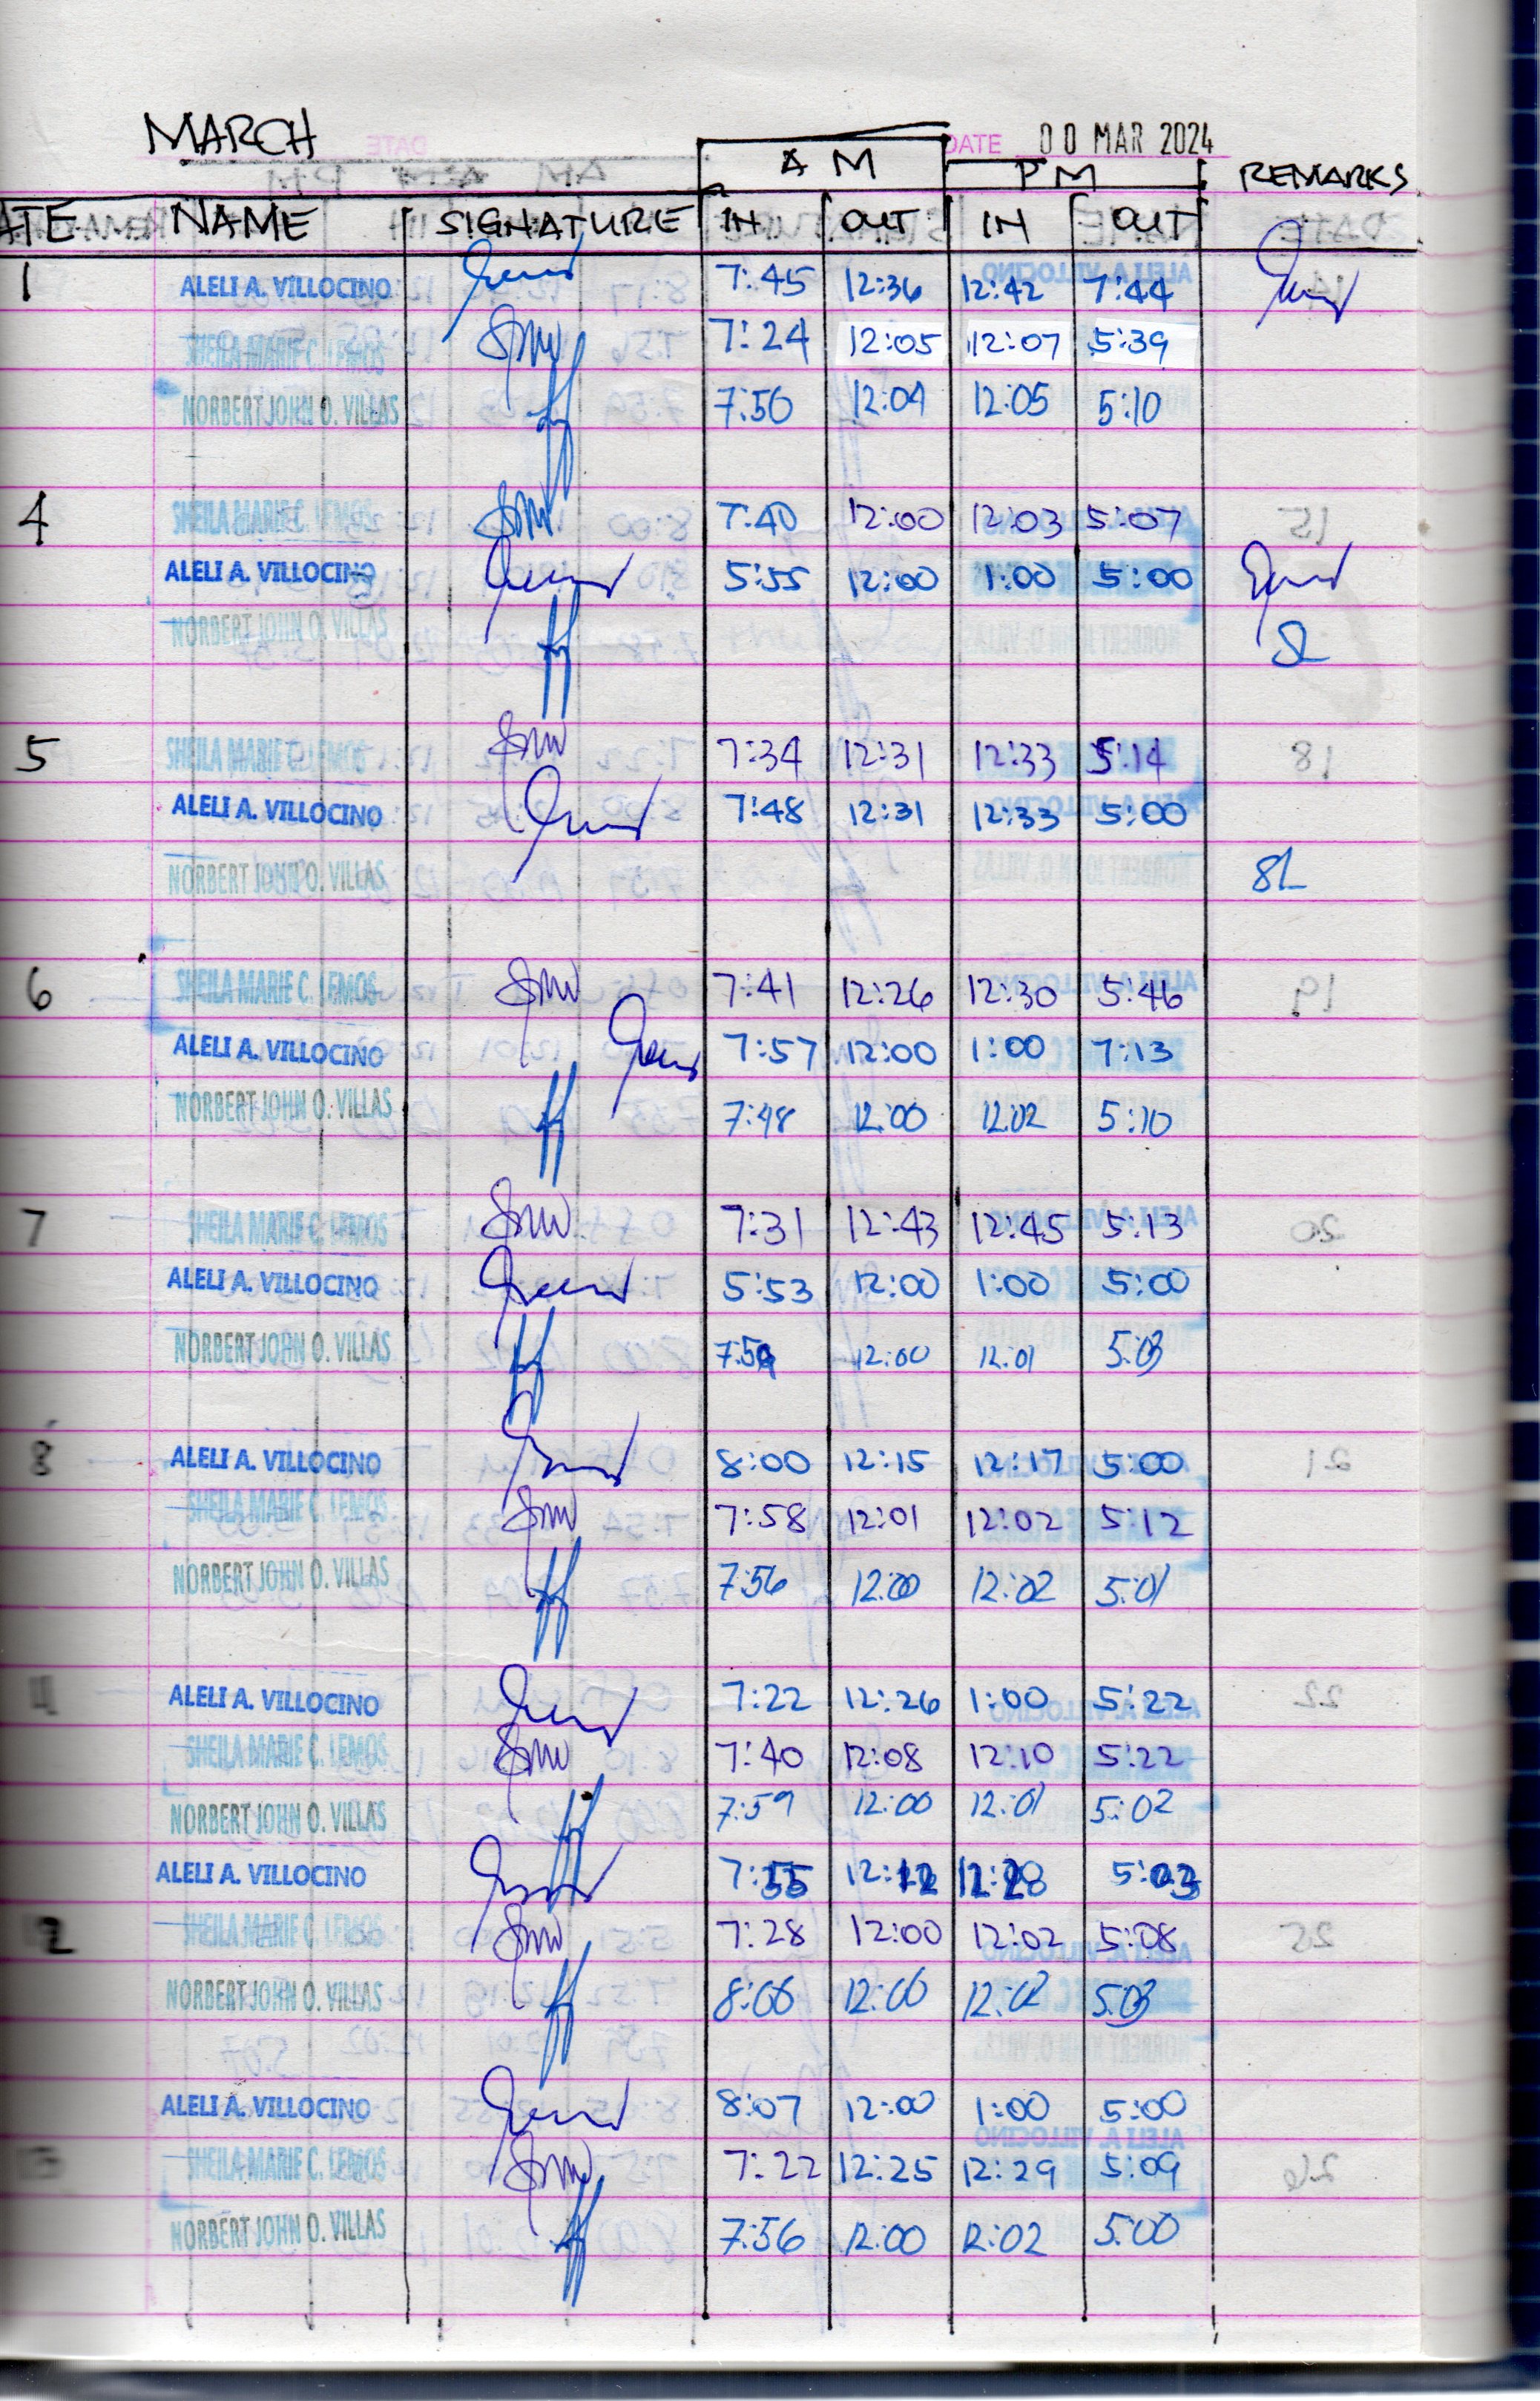 MARCH DATE 00 MAR 2024
AM PM REMARKS
ATE NAME SIGNATURE IN OUT IN OUT
1 ALELI A. VILLOCINO 7:45 12:36 12:42 7:44
SHEILA MARIE C. LEMOS 7:24 12:05 12:07 5:39
NORBERT JOHN O. VILLAS 7:50 12:04 12:05 5:10
4 SHEILA MARIE C. LEMOS 7:40 12:00 12:03 5:07
ALELI A. VILLOCINO 5:55 12:00 1:00 5:00
NORBERT JOHN O. VILLAS SL
5 SHEILA MARIE C. LEMOS 7:34 12:31 12:33 5:14
ALELI A. VILLOCINO 7:48 12:31 12:33 5:00
NORBERT JOHN O. VILLAS SL
6 SHEILA MARIE C. LEMOS 7:41 12:26 12:30 5:46
ALELI A. VILLOCINO 7:57 12:00 1:00 7:13
NORBERT JOHN O. VILLAS 7:48 12:00 12:02 5:10
7 SHEILA MARIE C. LEMOS 7:31 12:43 12:45 5:13
ALELI A. VILLOCINO 5:53 12:00 1:00 5:00
NORBERT JOHN O. VILLAS 12:00 12:01 5:03
8 ALELI A. VILLOCINO 8:00 12:15 12:17 5:00
SHEILA MARIE C. LEMOS 7:58 12:01 12:02 5:12
NORBERT JOHN O. VILLAS 7:56 12:00 12:02 5:01
11 ALELI A. VILLOCINO 7:22 12:26 1:00 5:22
SHEILA MARIE C. LEMOS 7:40 12:08 12:10 5:22
NORBERT JOHN O. VILLAS 7:59 12:00 12:01 5:02
ALELI A. VILLOCINO 7:55 12:12 5:03
12 SHEILA MARIE C. LEMOS 7:28 12:00 12:02 5:08
NORBERT JOHN O. VILLAS 8:00 12:00 12:02 5:03
ALELI A. VILLOCINO 8:07 12:00 1:00 5:00
13 SHEILA MARIE C. LEMOS 7:22 12:25 12:29 5:09
NORBERT JOHN O. VILLAS 7:56 12:00 12:02 5:00